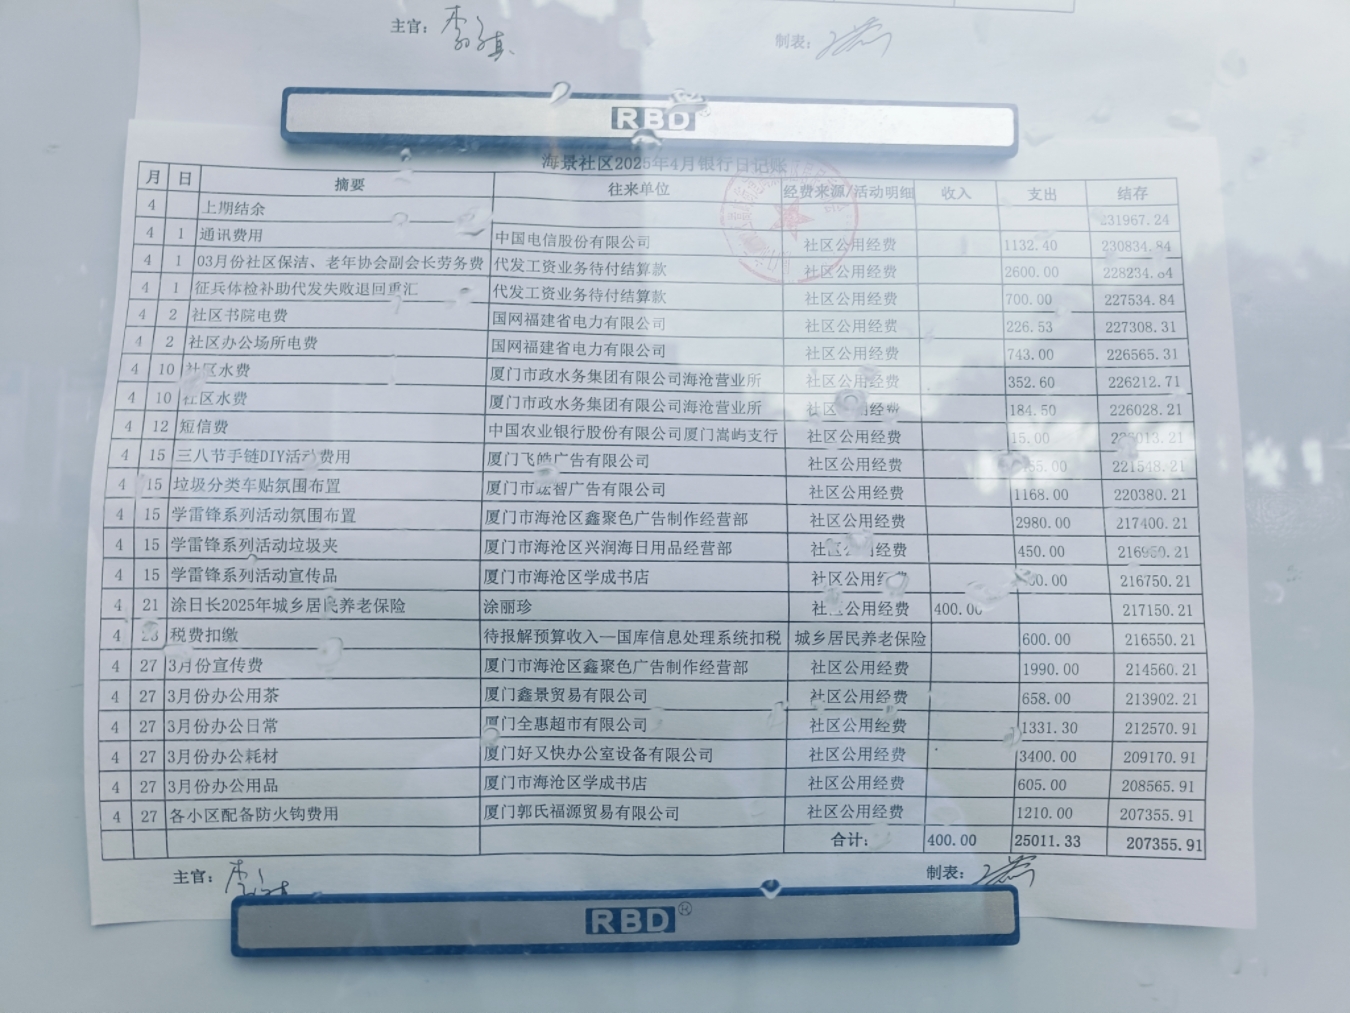 主官：
制表：
RBD
海景社区2025年4月银行日记账
月 日 摘要 往来单位 经费来源/活动明细 收入 支出 结存
4 上期结余 231967.24
4 1 通讯费用 中国电信股份有限公司 社区公用经费 1132.40 230834.84
4 1 03月份社区保洁、老年协会副会长劳务费 代发工资业务待付结算款 社区公用经费 2600.00 228234.84
4 1 征兵体检补助代发失败退回重汇 代发工资业务待付结算款 社区公用经费 700.00 227534.84
4 2 社区书院电费 国网福建省电力有限公司 社区公用经费 226.53 227308.31
4 2 社区办公场所电费 国网福建省电力有限公司 社区公用经费 743.00 226565.31
4 10 社区水费 厦门市政水务集团有限公司海沧营业所 社区公用经费 352.60 226212.71
4 10 社区水费 厦门市政水务集团有限公司海沧营业所 社区公用经费 184.50 226028.21
4 12 短信费 中国农业银行股份有限公司厦门嵩屿支行 社区公用经费 15.00 226013.21
4 15 三八节手链DIY活动费用 厦门飞皓广告有限公司 社区公用经费 221548.21
4 15 垃圾分类车贴氛围布置 厦门市 智广告有限公司 社区公用经费 1168.00 220380.21
4 15 学雷锋系列活动氛围布置 厦门市海沧区鑫聚色广告制作经营部 社区公用经费 2980.00 217400.21
4 15 学雷锋系列活动垃圾夹 厦门市海沧区兴润海日用品经营部 社区公用经费 450.00 216950.21
4 15 学雷锋系列活动宣传品 厦门市海沧区学成书店 社区公用经费 216750.21
4 21 涂日长2025年城乡居民养老保险 涂丽珍 社区公用经费 400.00 217150.21
4 税费扣缴 待报解预算收入—国库信息处理系统扣税 城乡居民养老保险 600.00 216550.21
4 27 3月份宣传费 厦门市海沧区鑫聚色广告制作经营部 社区公用经费 1990.00 214560.21
4 27 3月份办公用茶 厦门鑫景贸易有限公司 社区公用经费 658.00 213902.21
4 27 3月份办公日常 厦门全惠超市有限公司 社区公用经费 1331.30 212570.91
4 27 3月份办公耗材 厦门好又快办公室设备有限公司 社区公用经费 3400.00 209170.91
4 27 3月份办公用品 厦门市海沧区学成书店 社区公用经费 605.00 208565.91
4 27 各小区配备防火钩费用 厦门郭氏福源贸易有限公司 社区公用经费 1210.00 207355.91
合计： 400.00 25011.33 207355.91
主官：
制表：
RBD®